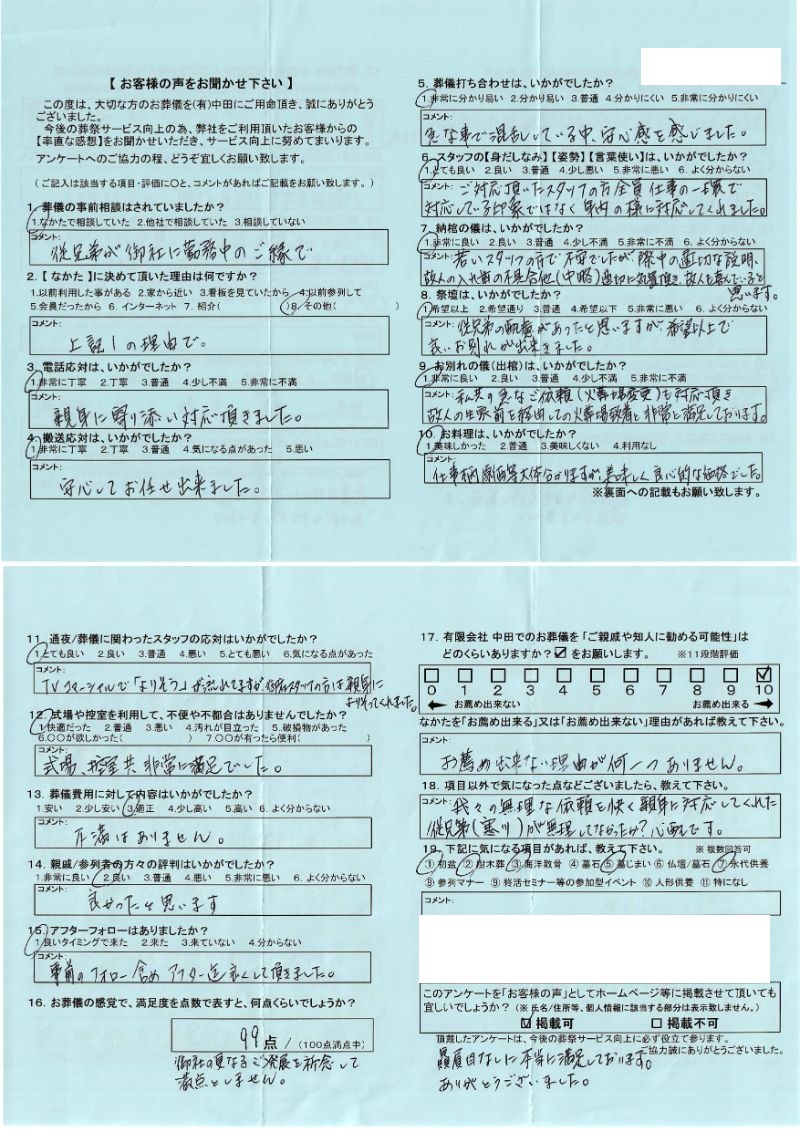 【 お客様の声をお聞かせ下さい 】
この度は、大切な方のお葬儀を(有)中田にご用命頂き、誠にありがとう
ございました。
今後の葬祭サービス向上の為、弊社をご利用頂いたお客様からの
【率直な感想】をお聞かせいただき、サービス向上に努めてまいります。
アンケートへのご協力の程、どうぞ宜しくお願い致します。
( ご記入は該当する項目・評価に〇と、コメントがあればご記載をお願い致します。)
1. 葬儀の事前相談はされていましたか?
1.なかたで相談していた 2.他社で相談していた 3.相談していない
コメント:
従兄弟が御社に勤務中のご縁で
2. 【 なかた 】に決めて頂いた理由は何ですか?
1.以前利用した事がある 2.家から近い 3.看板を見ていたから 4.以前参列して
5.会員だったから 6. インターネット 7. 紹介( )8.その他( )
コメント:
上記1の理由で。
3. 電話応対は、いかがでしたか?
1.非常に丁寧 2.丁寧 3.普通 4.少し不満 5.非常に不満
コメント:
親身に寄り添い対応頂きました。
4. 搬送応対は、いかがでしたか?
1.非常に丁寧 2.丁寧 3.普通 4.気になる点があった 5.悪い
コメント:
安心してお任せ出来ました。
5. 葬儀打ち合わせは、いかがでしたか?
1.非常に分かり易い 2.分かり易い 3.普通 4.分かりにくい 5.非常に分かりにくい
コメント:
急な事で混乱している中、安心感を感じました。
6. スタッフの【身だしなみ】【姿勢】【言葉使い】は、いかがでしたか?
1.とても良い 2.良い 3.普通 4.少し悪い 5.非常に悪い 6. よく分からない
コメント: ご対応頂いたスタッフの方全員 仕事の一環で
対応している印象ではなく身内の様に対応してくれました。
7. 納棺の儀は、いかがでしたか?
1.非常に良い 2.良い 3.普通 4.少し不満 5.非常に不満 6. よく分からない
コメント: 若いスタッフの方で不安でしたが、際中の適切な説明、
故人の入れ歯の不具合他(中略)適切に処置頂き、故人も喜んでいると
思います。
8. 祭壇は、いかがでしたか?
1.希望以上 2.希望通り 3.普通 4.希望以下 5.非常に悪い 6. よく分からない
コメント: 従兄弟の配慮があったと思いますが希望以上で
良いお別れが出来ました。
9. お別れの儀(出棺)は、いかがでしたか?
1.非常に良い 2.良い 3.普通 4.少し不満 5.非常に不満
コメント: 私共の急なご依頼(火葬場変更)も対応頂き
故人の生家前を経由しての火葬場到着と非常に満足しております。
10. お料理は、いかがでしたか?
1.美味しかった 2.普通 3.美味しくない 4.利用なし
コメント:
仕事柄 原価等大体分かりますが、美味しく良心的な価格でした。
※裏面への記載もお願い致します。
11. 通夜/葬儀に関わったスタッフの応対はいかがでしたか?
1.とても良い 2.良い 3.普通 4.悪い 5.とても悪い 6.気になる点があった
コメント:
TVコマーシャルで「よりそう」が流れてますが、御社スタッフの方は親身に
より添ってくれました。
12. 式場や控室を利用して、不便や不都合はありませんでしたか?
1.快適だった 2.普通 3.悪い 4.汚れが目立った 5.破損物があった
6.〇〇が欲しかった( ) 7 〇〇が有ったら便利( )
コメント:
式場、控室共 非常に満足でした。
13. 葬儀費用に対して内容はいかがでしたか?
1.安い 2.少し安い 3.適正 4.少し高い 5.高い 6. よく分からない
コメント:
不満はありません。
14. 親戚/参列者の方々の評判はいかがでしたか?
1.非常に良い 2.良い 3.普通 4.悪い 5.非常に悪い 6. よく分からない
コメント:
良かったと思います
15. アフターフォローはありましたか?
1.良いタイミングで来た 2.来た 3.来ていない 4.分からない
コメント:
事前のフォロー含めアフター迄良くして頂きました。
16. お葬儀の感覚で、満足度を点数で表すと、何点くらいでしょうか?
99点 / (100点満点中)
御社の更なるご発展を祈念して
満点としません。
17. 有限会社 中田でのお葬儀を「ご親戚や知人に勧める可能性」は
どのくらいありますか? ☑ をお願いします。 ※11段階評価
0 1 2 3 4 5 6 7 8 9 10
← お薦め出来ない お薦め出来る →
なかたを「お薦め出来る」又は「お薦め出来ない」理由があれば教えて下さい。
コメント:
お薦め出来ない理由が何一つありません。
18. 項目以外で気になった点などございましたら、教えて下さい。
コメント: 我々の無理な依頼を快く親身に対応してくれた
従兄弟(寒川)が無理してなかったか?心配です。
19. 下記に気になる項目があれば、教えて下さい。 ※ 複数回答可
① 初盆 ② 樹木葬 ③ 海洋散骨 ④ 墓石 ⑤ 墓じまい ⑥ 仏壇/墓石 ⑦ 永代供養
⑧ 参列マナー ⑨ 終活セミナー等の参加型イベント ⑩ 人形供養 ⑪ 特になし
コメント:
このアンケートを「お客様の声」としてホームページ等に掲載させて頂いても
宜しいでしょうか? (※ 氏名/住所等、個人情報に該当する部分は表示致しません。)
☑ 掲載可 □ 掲載不可
頂戴したアンケートは、今後の葬祭サービス向上に必ず役立て参ります。
ご協力誠にありがとうございました。
贔屓目なしに本当に満足しております。
ありがとうございました。